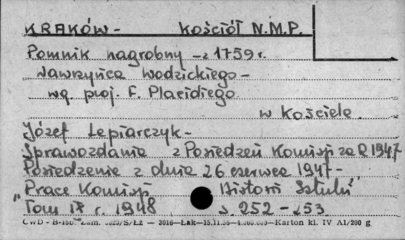 KRAKÓW - Kościół N.M.P.
Pomnik nagrobny - z 1759 r.
Wawrzyńca Wodzickiego -
wg. proj. F. Placidiego
w kościele.
Józef Lepiarczyk -
Sprawozdanie z Posiedzeń Komisji za R 1947
Posiedzenie z dnia 26 czerwca 1947 -
"Prace Komisji Historii Sztuki"
Tom IX r. 1948 s. 252 - 253
Karton kl. IV A1/200 g